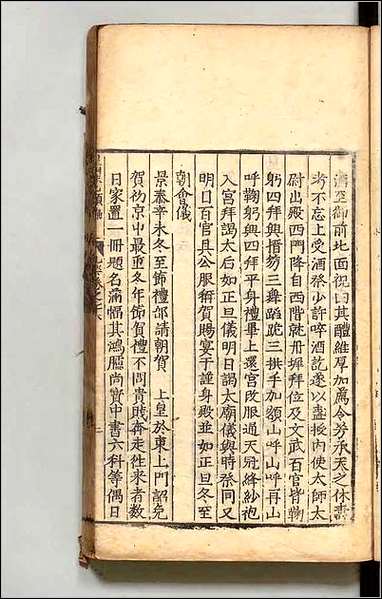 酒至御前北面祝曰其醴維厚加薦令芳承天之休壽
考不忘上受酒祭少許啐酒訖遂以盞授內使太師太
尉出殿西門降自西階就丹墀拜位及文武百官皆鞠
躬四拜興搢笏三舞蹈跪三拱手加額山呼山呼再山
呼鞠躬興四拜平身禮畢上還宮改服通天冠絳紗袍
入宮拜謁太后如正旦儀明日謁太廟儀與時祭同又
明日百官具公服稱賀賜宴于謹身殿並如正旦冬至
朝會儀
景泰辛未冬至節禮部請朝賀 上皇於東上門詔免
賀初京中最重冬年節賀禮不問貴賤奔走往來者數
日家置一冊題名滿幅其鴻臚尚寶中書六科等偶日